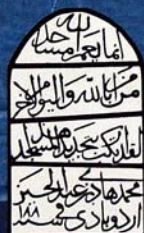 انما يعمر مساجد الله
من آمن بالله واليوم الآخر
لقد بتجديد هذا المسجد
محمد هادي عبد العزيز
اردوبادي في سنة